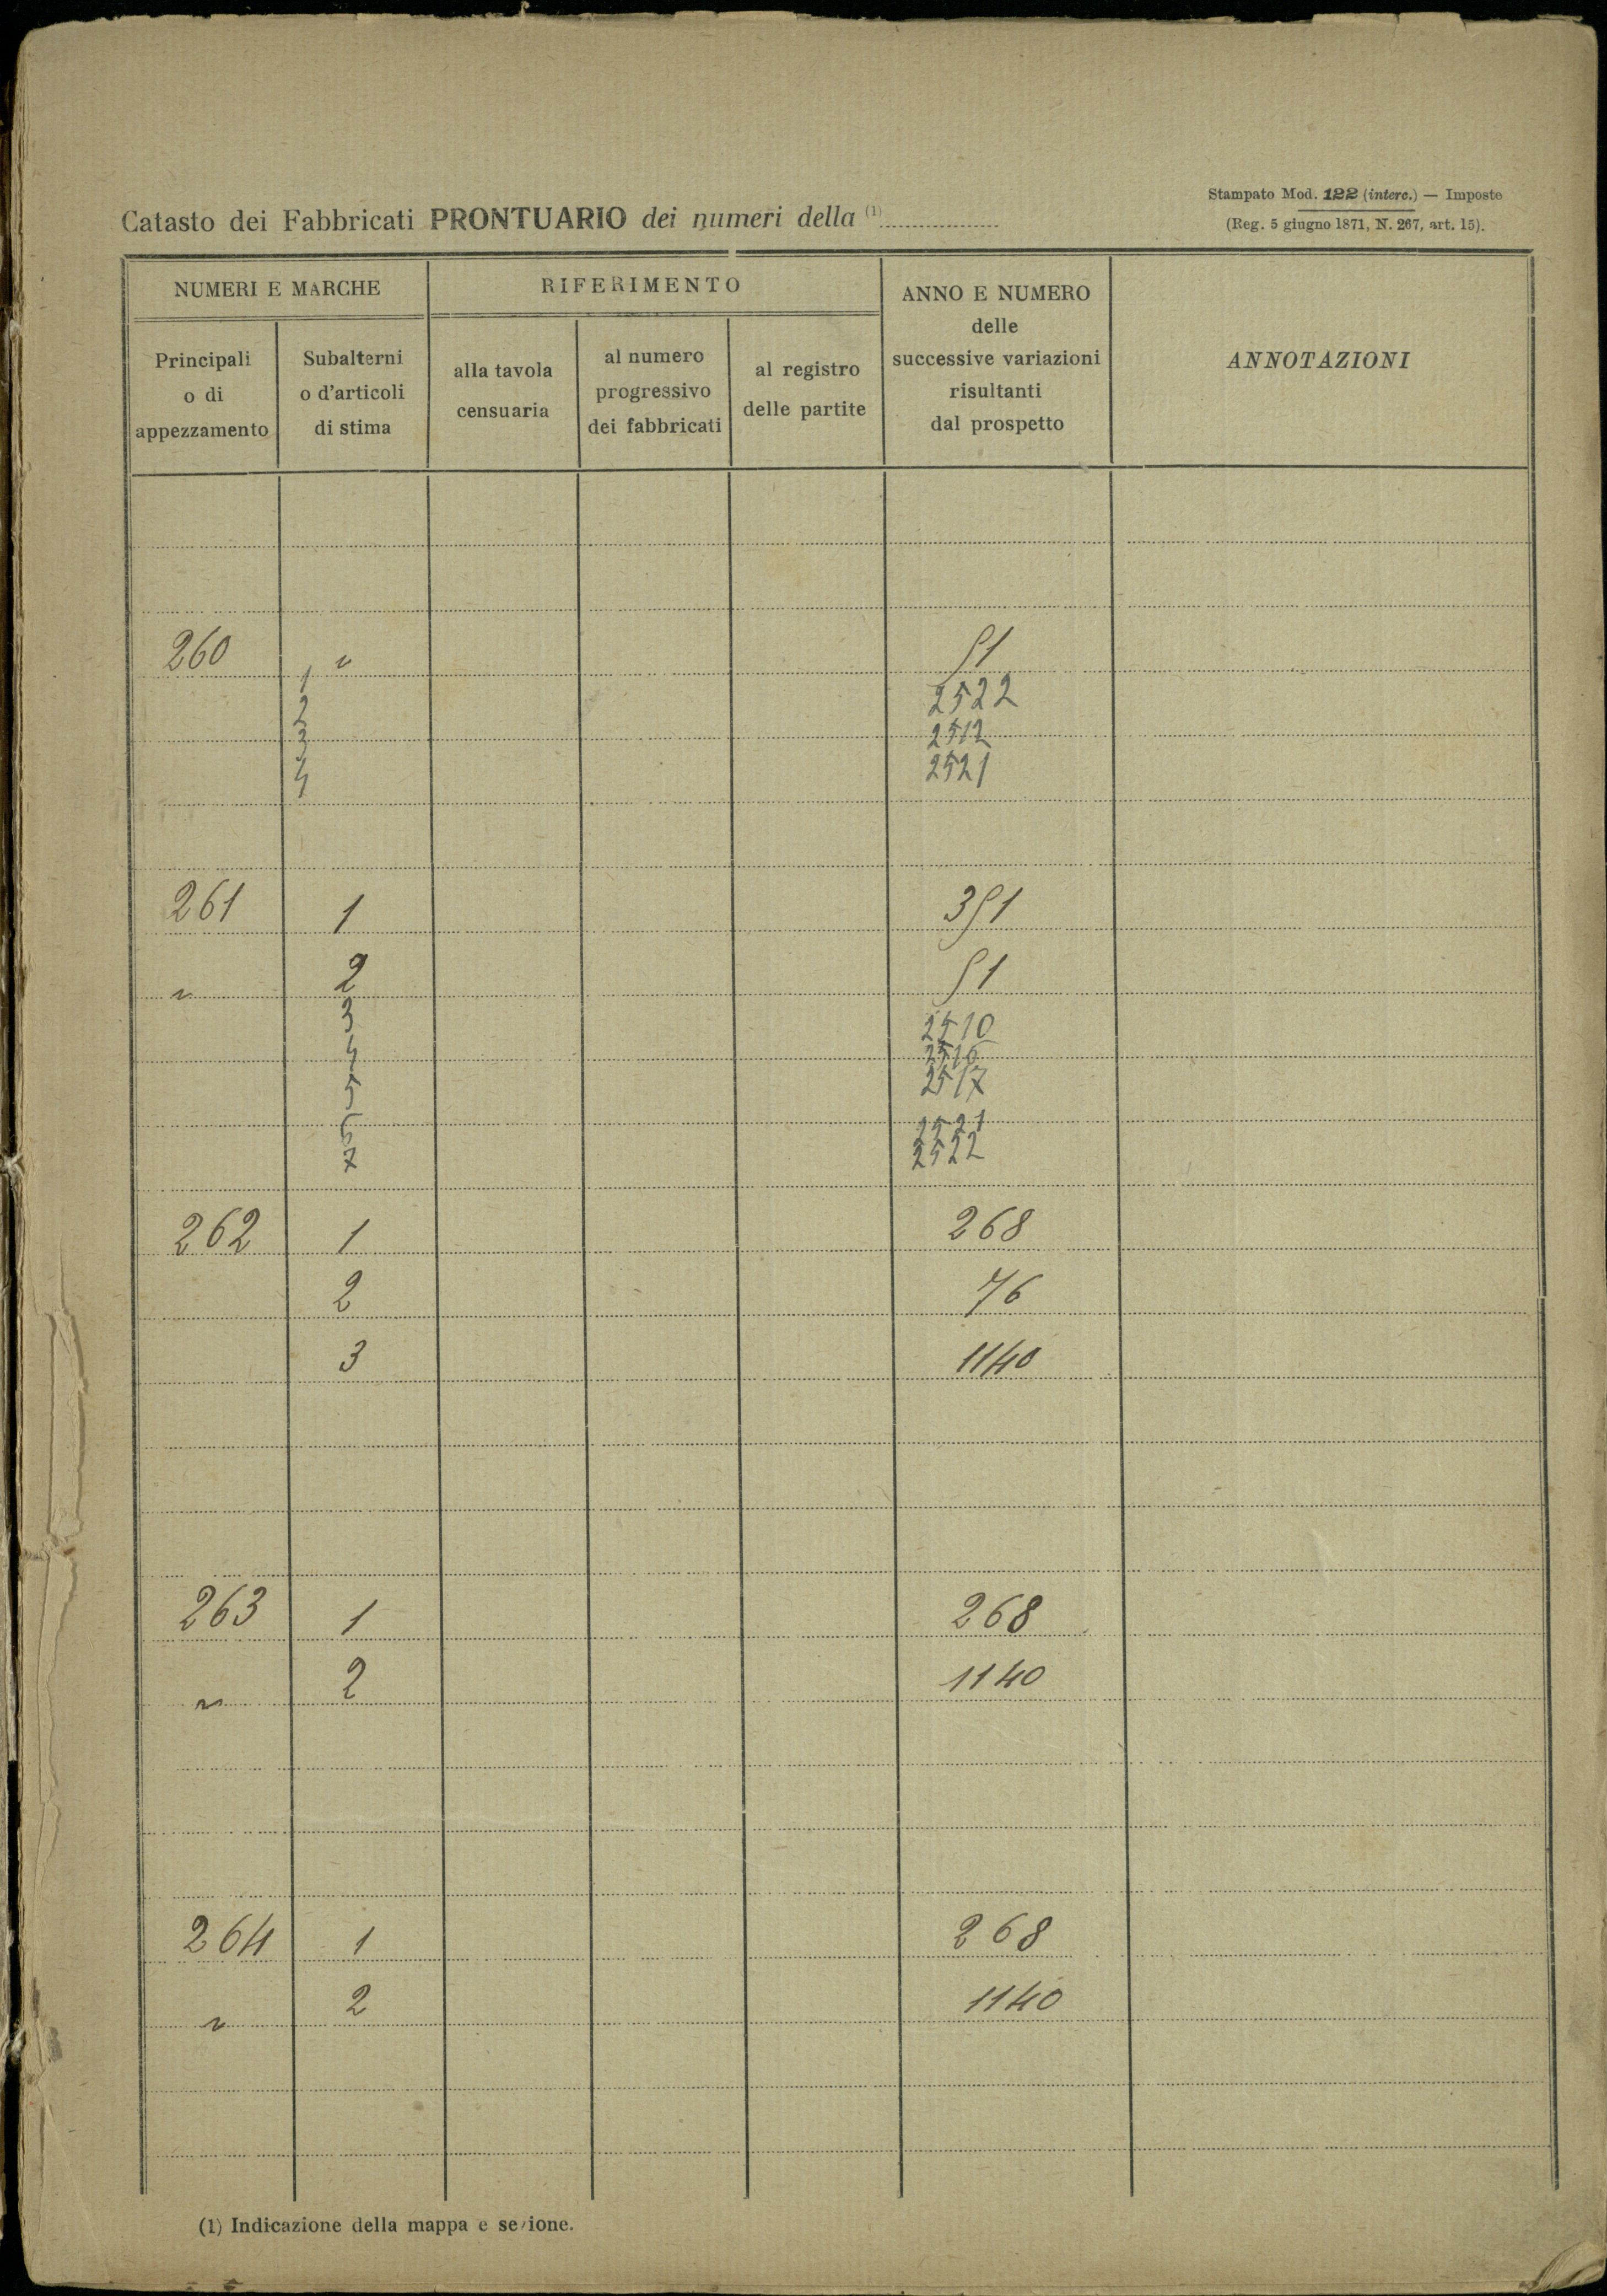 Stampato Mod. 122 (interc.) — Imposte
(Reg. 5 giugno 1871, N. 267, art. 15).
Catasto dei Fabbricati PRONTUARIO dei numeri della (1)
NUMERI E MARCHE
RIFERIMENTO
ANNO E NUMERO
delle
successive variazioni
risultanti
dal prospetto
ANNOTAZIONI
Principali
o di
appezzamento
Subalterni
o d'articoli
di stima
alla tavola
censuaria
al numero
progressivo
dei fabbricati
al registro
delle partite
260 " 51
1 2522
2
3 2512
4 2521
261 1 351
" 2 51
3 2510
4 2516
5 2517
6 2521
7 2522
262 1 268
2 76
3 1140
263 1 268
" 2 1140
264 1 268
" 2 1140
(1) Indicazione della mappa e sezione.